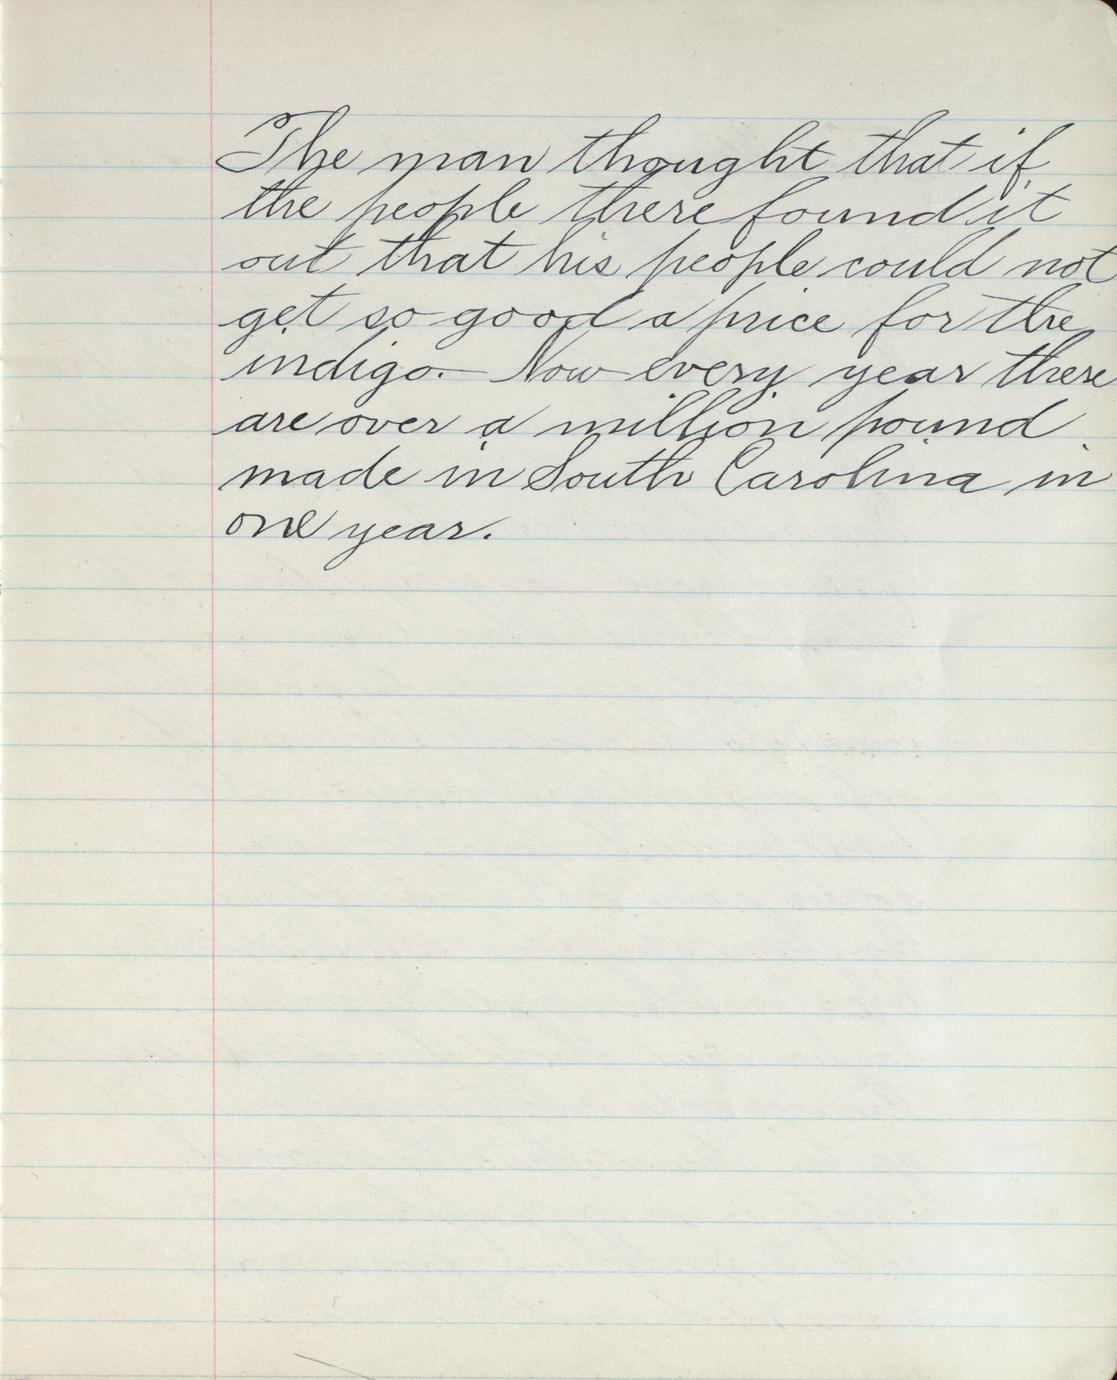 The man thought that if
the people there found it
out that his people could not
get so good a price for the
indigo. Now every year there
are over a million pound
made in South Carolina in
one year.